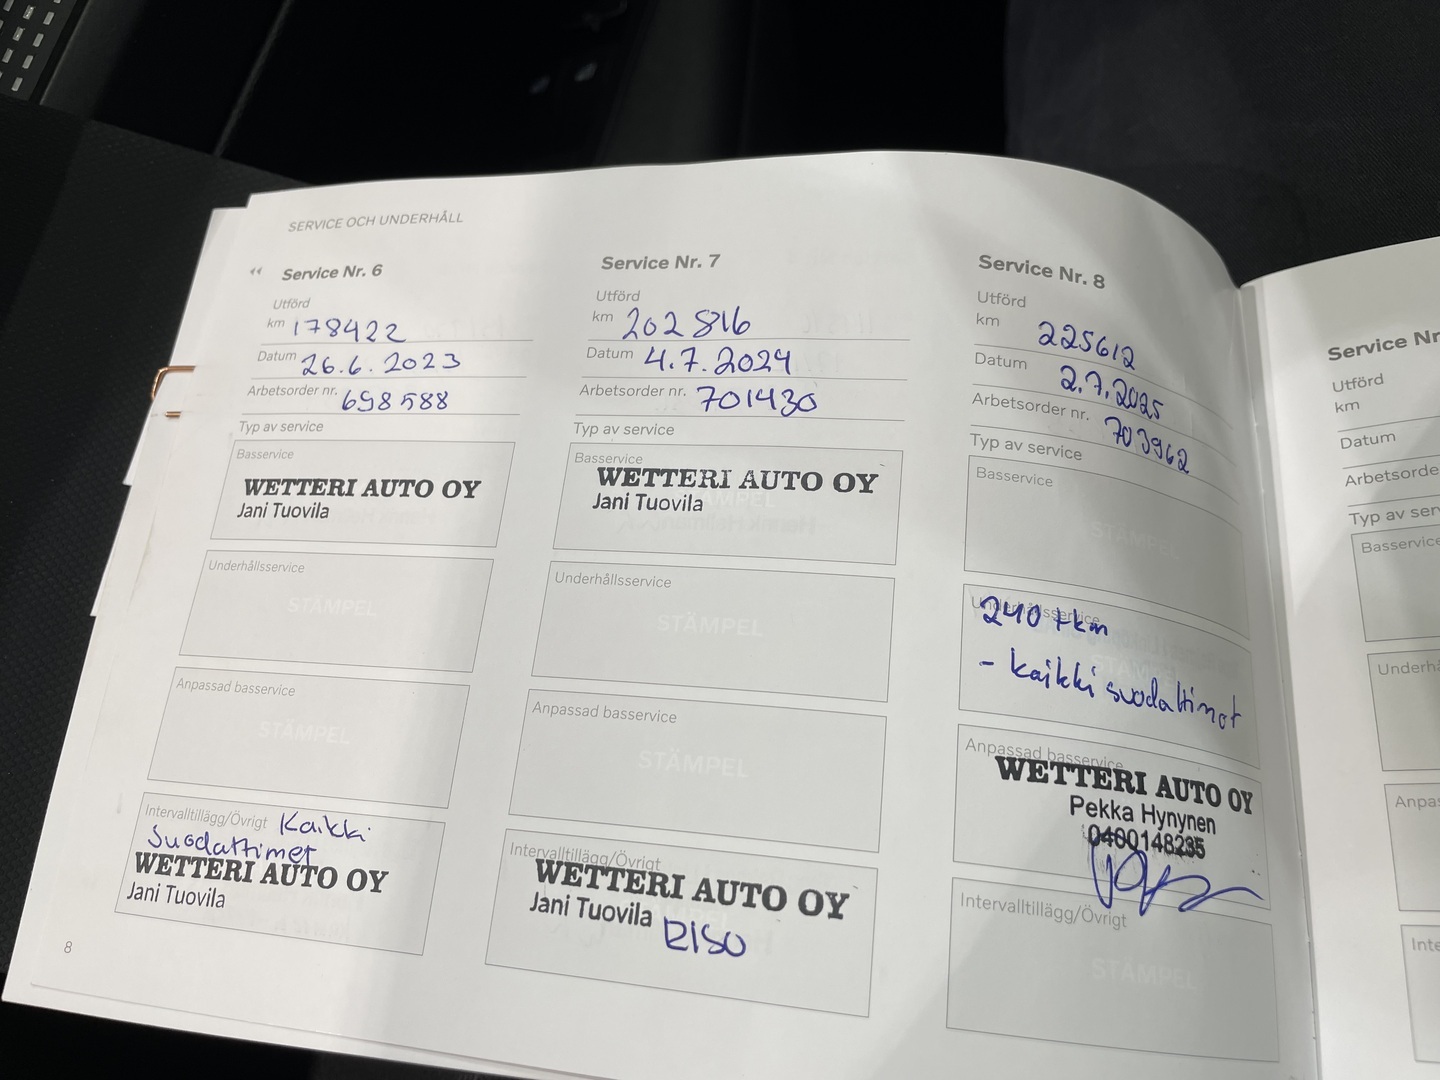 SERVICE OCH UNDERHÅLL
‹‹ Service Nr. 6
Utförd
km 178422
Datum 26.6.2023
Arbetsorder nr. 698588
Typ av service
Basservice
WETTERI AUTO OY
Jani Tuovila
Underhållsservice
STÄMPEL
Anpassad basservice
STÄMPEL
Intervalltillägg/Övrigt Kaikki
Suodattimet
WETTERI AUTO OY
Jani Tuovila
8
Service Nr. 7
Utförd
km 202816
Datum 4.7.2024
Arbetsorder nr. 701430
Typ av service
Basservice
WETTERI AUTO OY
STÄMPEL
Jani Tuovila
Underhållsservice
STÄMPEL
Anpassad basservice
STÄMPEL
Intervalltillägg/Övrigt
WETTERI AUTO OY
Jani Tuovila
Service Nr. 8
Utförd
km 225612
Datum 2.7.2025
Arbetsorder nr. 703962
Typ av service
Basservice
STÄMPEL
Underhållsservice
240 tkm
- kaikki suodattimet
Anpassad basservice
WETTERI AUTO OY
Pekka Hynynen
0400148235
Intervalltillägg/Övrigt
STÄMPEL
Service Nr
Utförd
km
Datum
Arbetsorde
Typ av ser
Basservice
Underhå
Anpa
Inte